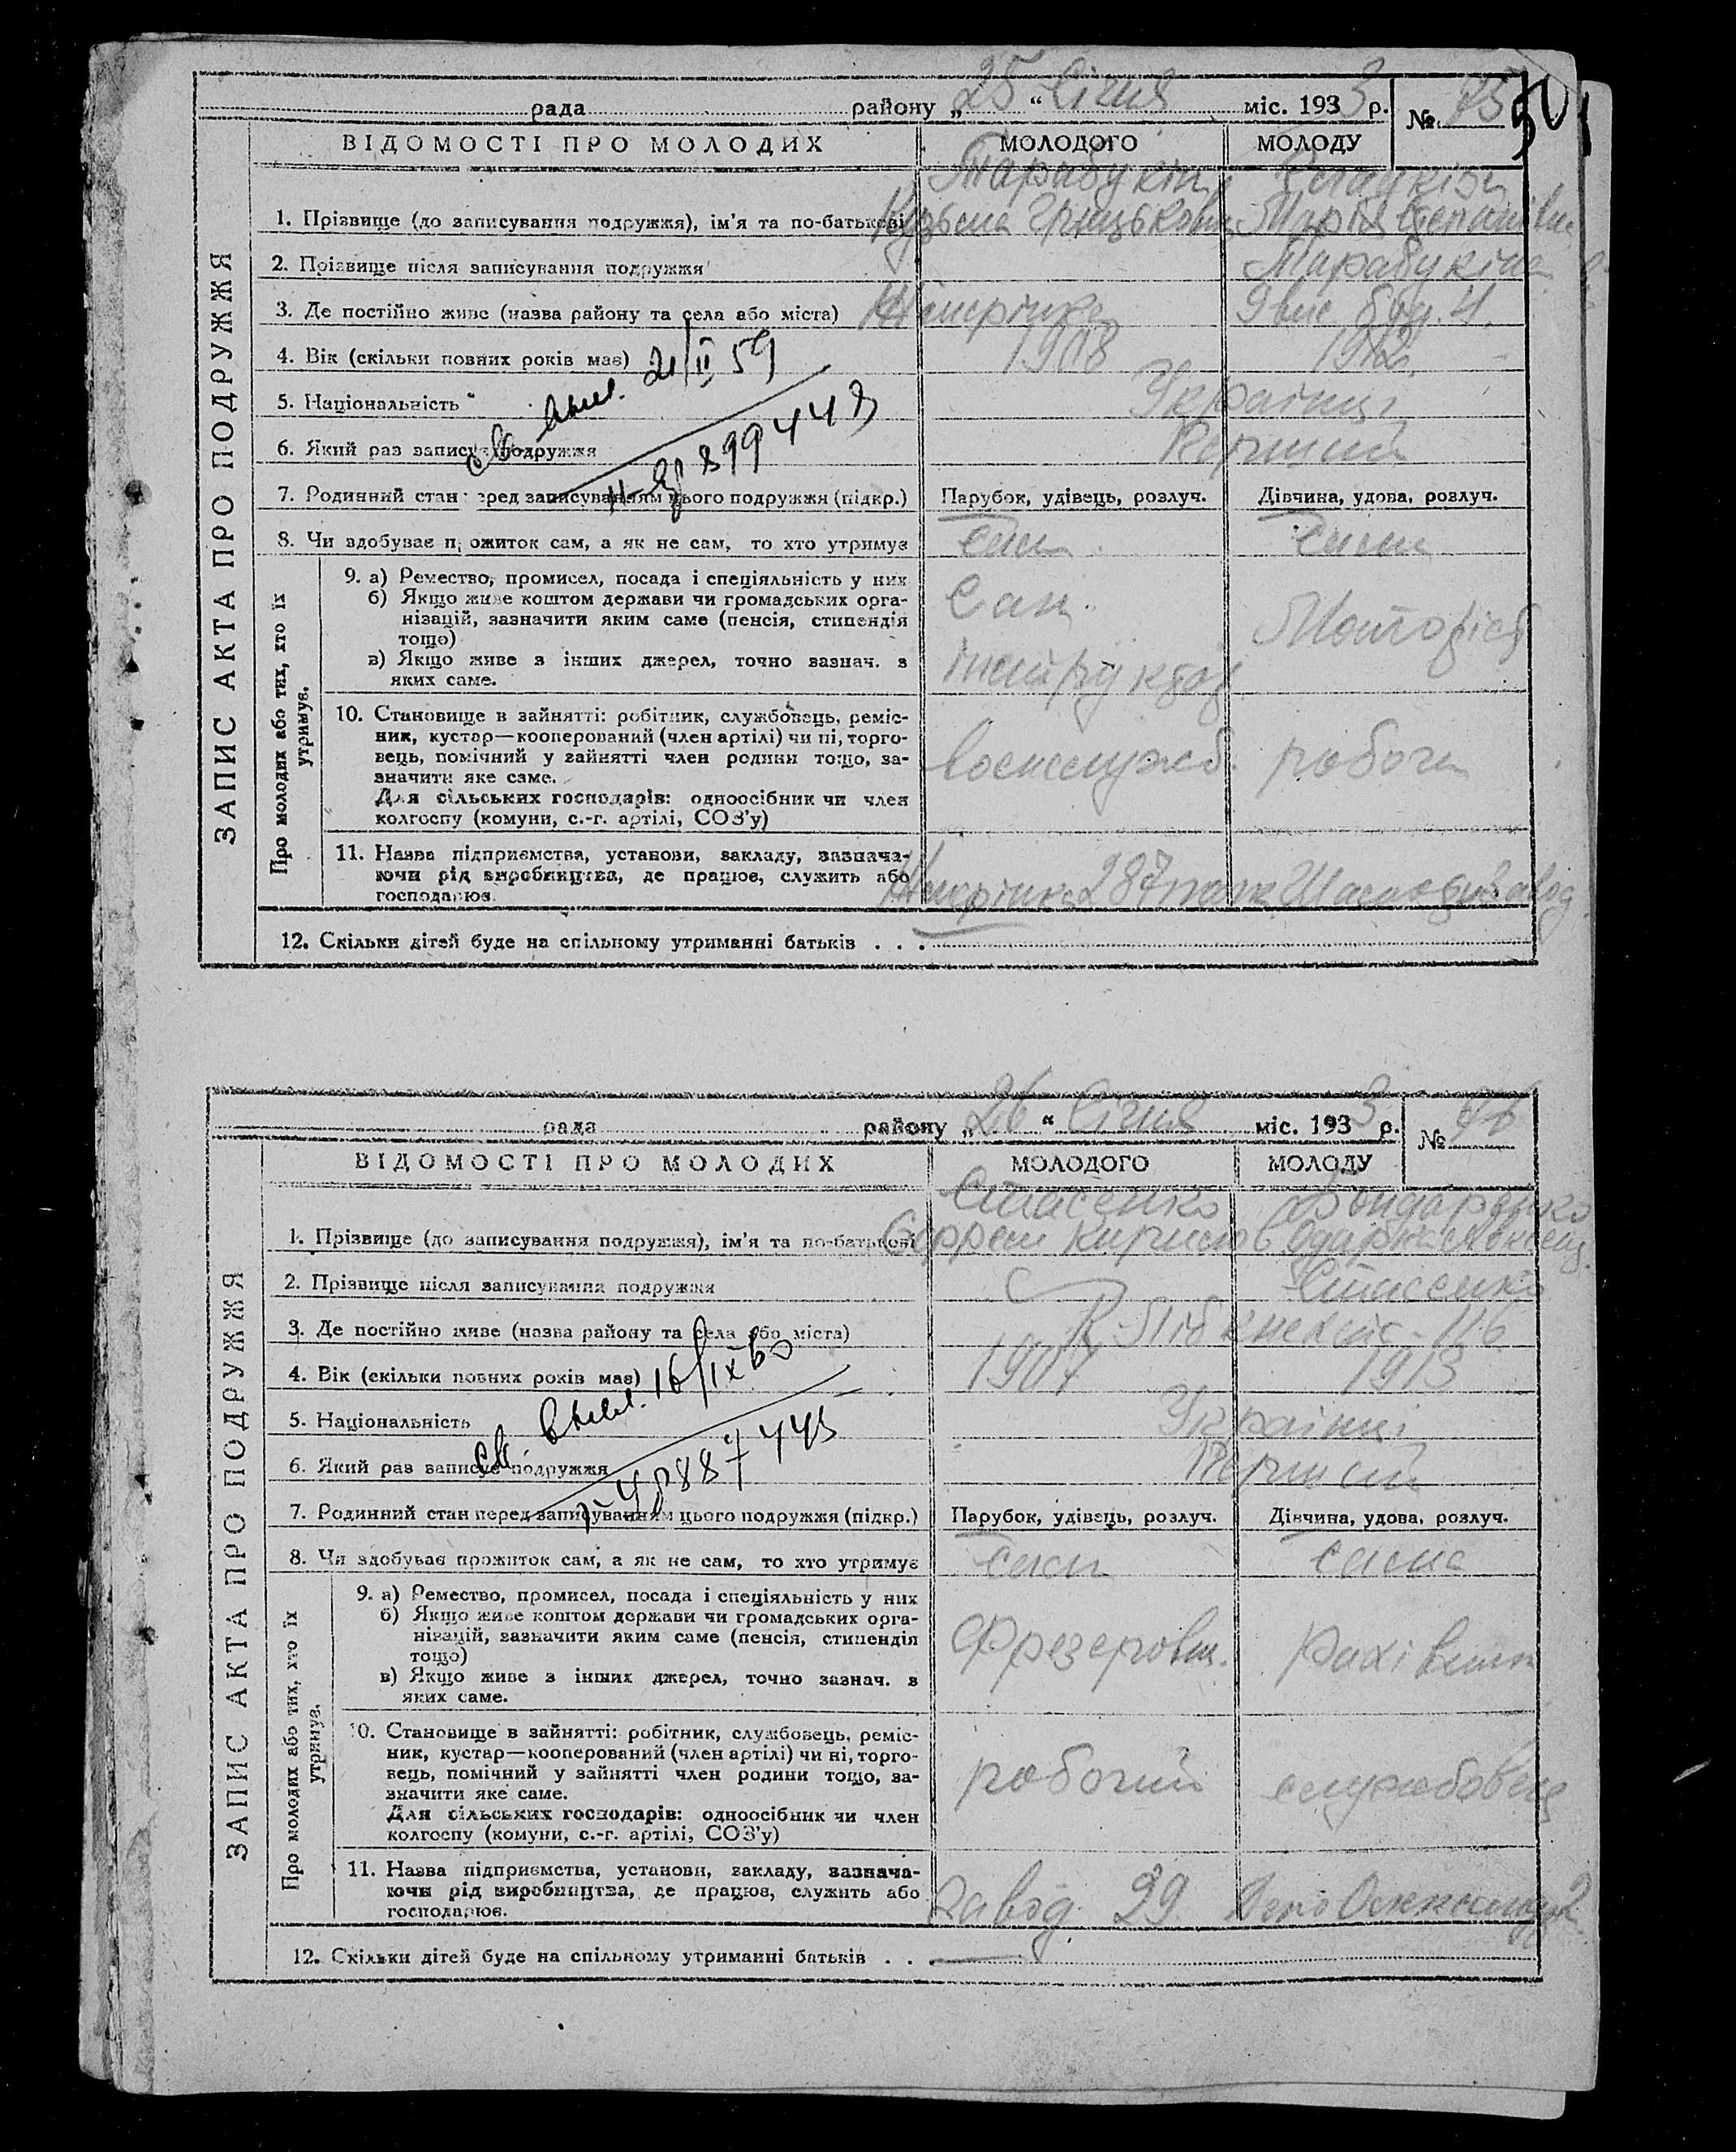 рада району „ 25 “ Січня міс. 193 3 р. № 75
ВІДОМОСТІ ПРО МОЛОДИХ МОЛОДОГО МОЛОДУ
ЗАПИС АКТА ПРО ПОДРУЖЖЯ
Тарабукін
1. Прізвище (до записування подружжя), ім'я та по-батькові Кузьма Грицькович Марія Степанівна
2. Прізвище після записування подружжя Тарабукіна
3. Де постійно живе (назва району та села або міста)
4. Вік (скільки повних років має) 1908 1912
21/II 59
5. Національність Українці
6. Який раз записує подружжя Перший
899443
7. Родинний стан перед записуванням цього подружжя (підкр.) Парубок, удівець, розлуч. Дівчина, удова, розлуч.
8. Чи здобуває прожиток сам, а як не сам, то хто утримує Сам Сама
Про молодих або тих, хто їх утримує.
9. а) Ремество, промисел, посада і спеціяльність у них
б) Якщо живе коштом держави чи громадських орга-
нізацій, зазначити яким саме (пенсія, стипендія
тощо)
в) Якщо живе з інших джерел, точно зазнач. з
яких саме.
Сан.
інструктор
10. Становище в зайнятті: робітник, службовець, реміс-
ник, кустар—кооперований (член артілі) чи ні, торго-
вець, помічний у зайнятті член родини тощо, за-
значити яке саме.
Для сільських господарів: одноосібник чи член
колгоспу (комуни, с.-г. артілі, СОЗ'у)
военслужб. робоча
11. Назва підприємства, установи, закладу, зазнача-
ючи рід виробництва, де працює, служить або
господарює.
287 полк
12. Скільки дітей буде на спільному утриманні батьків . . .
рада району „ 26 “ Січня міс. 193 3 р. № 76
ВІДОМОСТІ ПРО МОЛОДИХ МОЛОДОГО МОЛОДУ
ЗАПИС АКТА ПРО ПОДРУЖЖЯ
Стасенко Бондаренко
1. Прізвище (до записування подружжя), ім'я та по-батькові Єфрем Кирилов Одарка
2. Прізвище після записування подружжя С Стасенко
3. Де постійно живе (назва району та села або міста) К-Лібкнехта - 116
4. Вік (скільки повних років має) 1907 1913
16/IX 60
5. Національність Українці
6. Який раз записує подружжя Перший
887443
7. Родинний стан перед записуванням цього подружжя (підкр.) Парубок, удівець, розлуч. Дівчина, удова, розлуч.
8. Чи здобуває прожиток сам, а як не сам, то хто утримує Сам Сама
Про молодих або тих, хто їх утримує.
9. а) Ремество, промисел, посада і спеціяльність у них
б) Якщо живе коштом держави чи громадських орга-
нізацій, зазначити яким саме (пенсія, стипендія
тощо)
в) Якщо живе з інших джерел, точно зазнач. з
яких саме.
Фрезеровщ.
10. Становище в зайнятті: робітник, службовець, реміс-
ник, кустар—кооперований (член артілі) чи ні, торго-
вець, помічний у зайнятті член родини тощо, за-
значити яке саме.
Для сільських господарів: одноосібник чи член
колгоспу (комуни, с.-г. артілі, СОЗ'у)
робочий службовець
11. Назва підприємства, установи, закладу, зазнача-
ючи рід виробництва, де працює, служить або
господарює.
Завод 29
12. Скільки дітей буде на спільному утриманні батьків . . . —